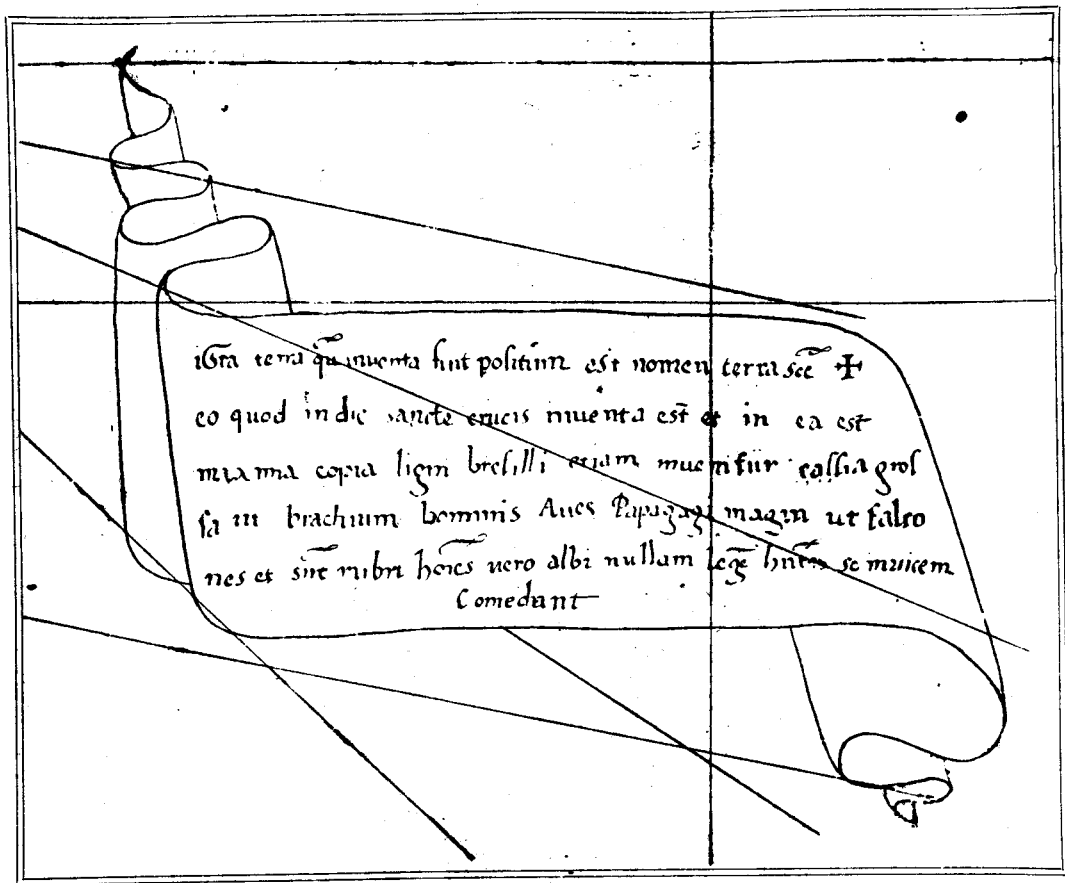 iSta terra qū inventa fuit positum est nomen terra scē ✝
eo quod in die sancte crucis inventa est et in ea est
ma na copia ligni bresilli etiam inuenitur cassia gros
sa ut brachium hominis Aues Papagagi magni ut falco
nes et sūt rubri hoīes uero albi nullam legē hñtes se inuicem
Comedant